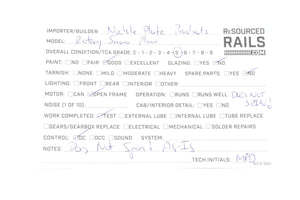 IMPORTER/BUILDER: Nickle Plate Products
MODEL: Rotary Snow Plow
RESOURCED RAILS .COM
OVERALL CONDITION/TCA GRADE C - 1 - 2 - 3 - 4 - 5 - 6 - 7 - 8 - 9
PAINT: NO FAIR GOOD EXCELLENT GLAZING: YES NO
TARNISH: NONE MILD MODERATE HEAVY SPARE PARTS YES NO
LIGHTING: FRONT REAR INTERIOR OTHER
MOTOR: CAN OPEN FRAME OPERATION: RUNS RUNS WELL DOES NOT
NOISE [1 OF 10] CAB/INTERIOR DETAIL: YES NO
WORK COMPLETED: TEST EXTERNAL LUBE INTERNAL LUBE TUBE REPLACE
GEARS/GEARBOX REPLACE ELECTRICAL MECHANICAL SOLDER REPAIRS
CONTROL: DC DCC SOUND SYSTEM:
NOTES: Does Not Spin! AS-IS
TECH INITIALS: